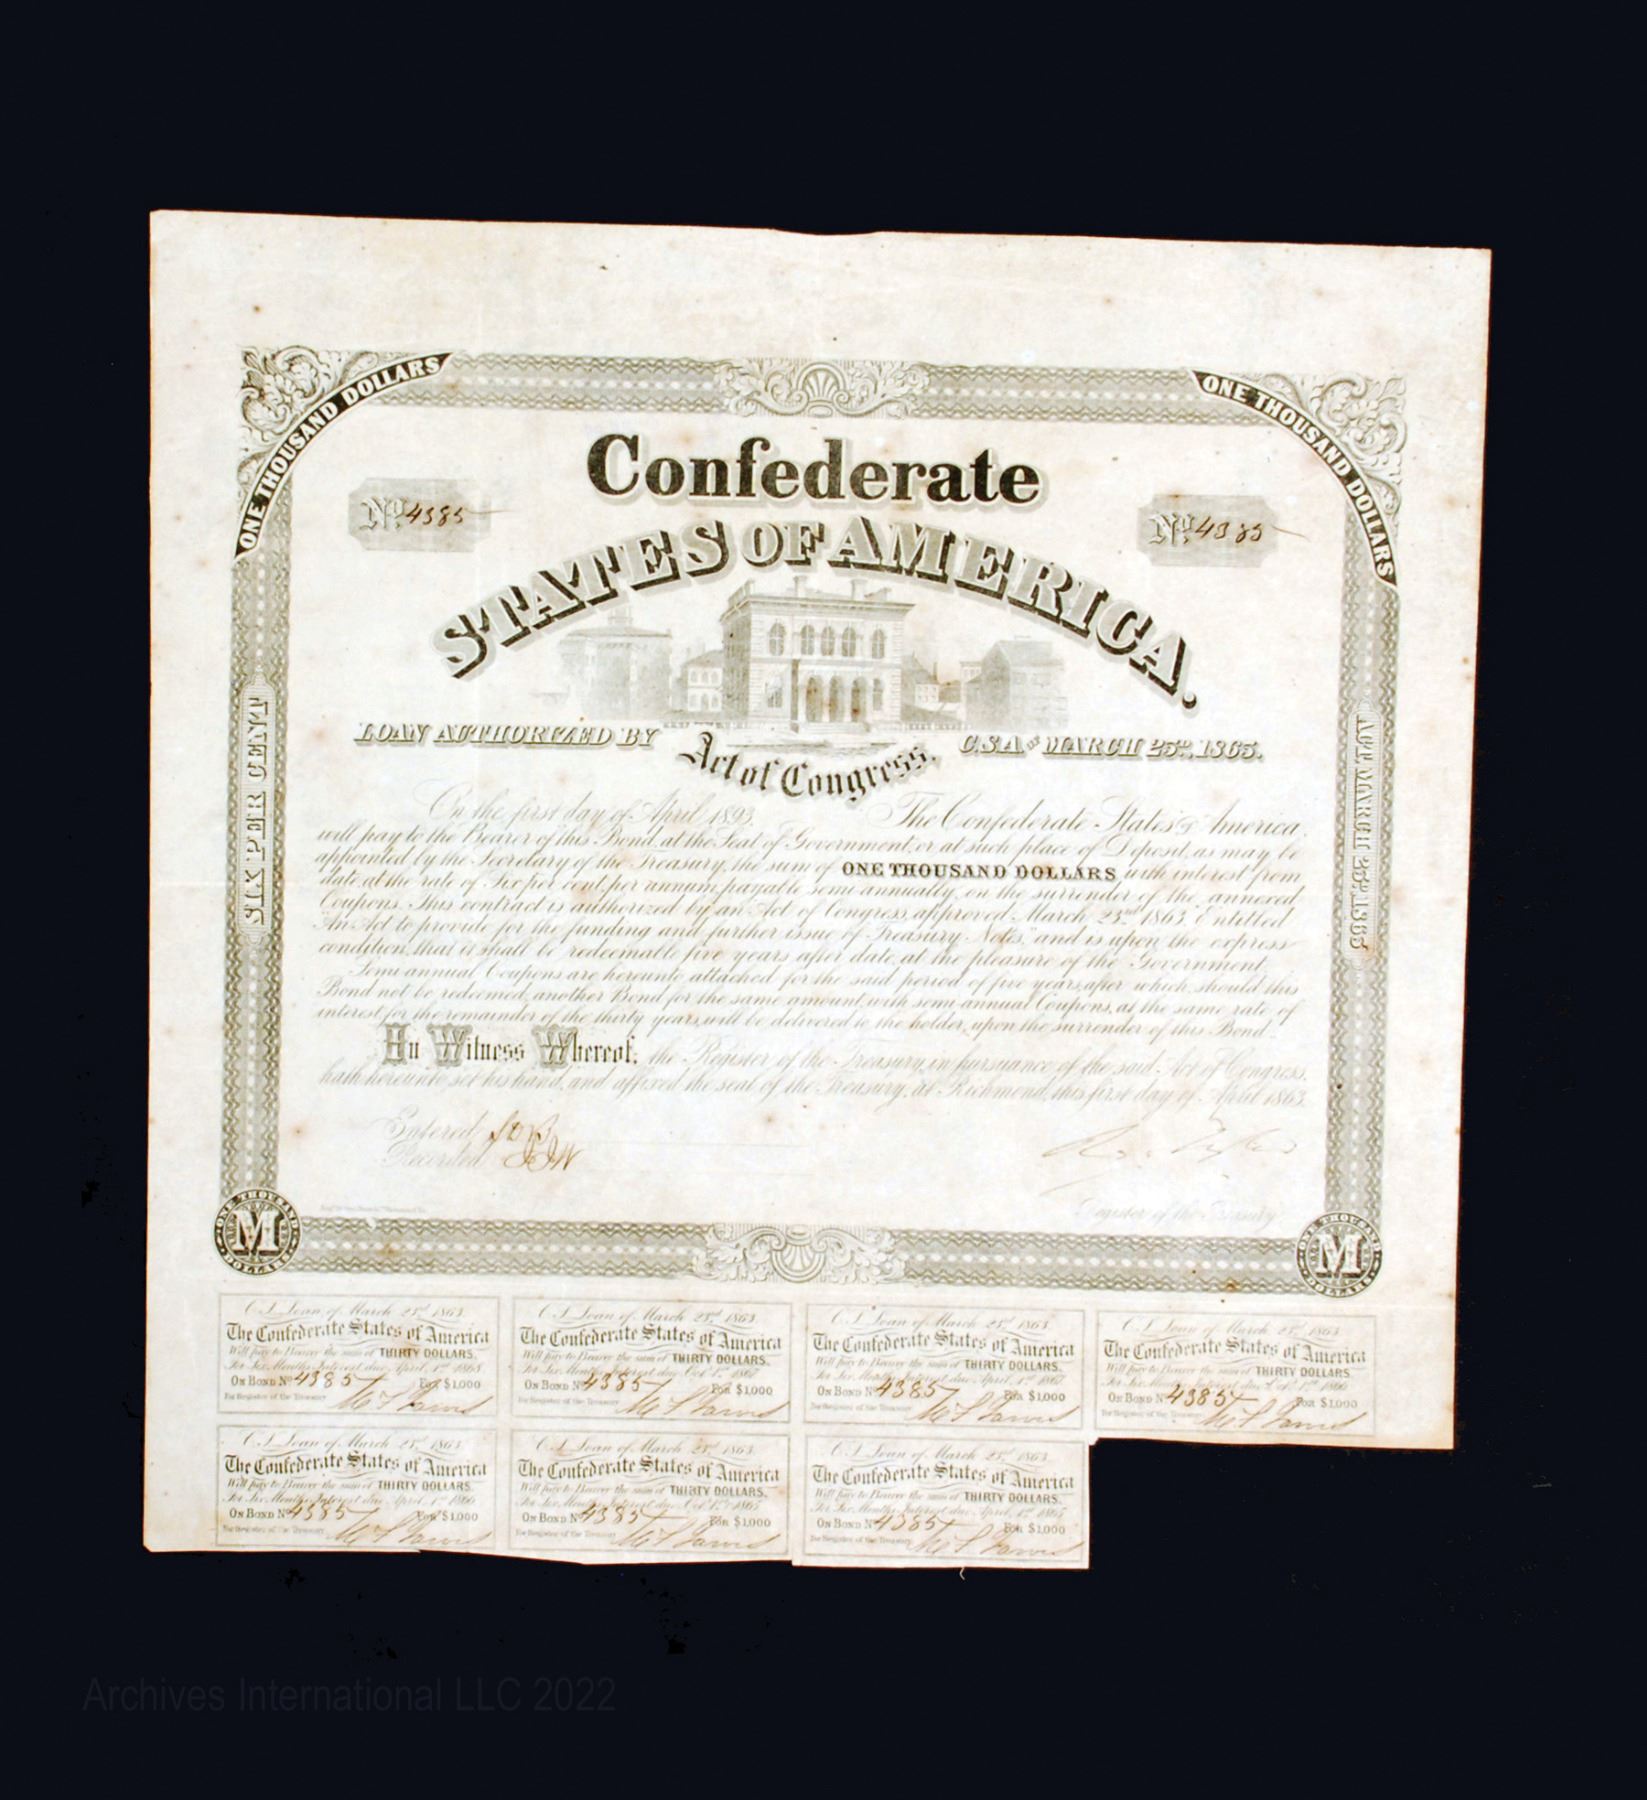 ONE THOUSAND DOLLARS
ONE THOUSAND DOLLARS
Confederate
No. 4385
No. 4385
STATES OF AMERICA.
LOAN AUTHORIZED BY
Act of Congress,
C.S.A. OF MARCH 23RD 1863.
SIX PER CENT
ACT MARCH 23RD 1863
On the first day of April 1893. The Confederate States of America,
will pay to the Bearer of this Bond, at the Seat of Government, or at such place of Deposit, as may be
appointed by the Secretary of the Treasury, the sum of ONE THOUSAND DOLLARS with interest from
date, at the rate of Six per cent, per annum, payable semi annually, on the surrender of the annexed
Coupons. This contract is authorized by an Act of Congress, approved March 23rd 1863, Entitled
"An Act to provide for the funding and further issue of Treasury Notes," and is upon the express
condition, that it shall be redeemable five years after date, at the pleasure of the Government.
Semi annual Coupons are hereunto attached for the said period of five years, after which, should this
Bond not be redeemed, another Bond for the same amount, with semi-annual Coupons, at the same rate of
interest, for the remainder of the thirty years, will be delivered to the holder, upon the surrender of this Bond.
In Witness Whereof, the Register of the Treasury, in pursuance of the said Act of Congress,
hath hereunto set his hand, and affixed the seal of the Treasury, at Richmond, this first day of April 1863.
Entered
Recorded
Register of the Treasury
ONE THOUSAND M DOLLARS
ONE THOUSAND M DOLLARS
C.S. Loan of March 23rd 1863.
The Confederate States of America
Will pay to Bearer the sum of THIRTY DOLLARS.
For Six Months Interest due April, 1st 1868
On Bond No 4385 For $1,000
For Register of the Treasury
C.S. Loan of March 23rd 1863.
The Confederate States of America
Will pay to Bearer the sum of THIRTY DOLLARS.
For Six Months Interest due Oct. 1st 1867
On Bond No 4385 For $1,000
For Register of the Treasury
C.S. Loan of March 23rd 1863.
The Confederate States of America
Will pay to Bearer the sum of THIRTY DOLLARS.
For Six Months Interest due April, 1st 1867
On Bond No 4385 For $1,000
For Register of the Treasury
C.S. Loan of March 23rd 1863.
The Confederate States of America
Will pay to Bearer the sum of THIRTY DOLLARS.
For Six Months Interest due Oct. 1st 1866
On Bond No 4385 For $1,000
For Register of the Treasury
C.S. Loan of March 23rd 1863.
The Confederate States of America
Will pay to Bearer the sum of THIRTY DOLLARS.
For Six Months Interest due April, 1st 1866
On Bond No 4385 For $1,000
For Register of the Treasury
C.S. Loan of March 23rd 1863.
The Confederate States of America
Will pay to Bearer the sum of THIRTY DOLLARS.
For Six Months Interest due Oct. 1st 1865
On Bond No 4385 For $1,000
For Register of the Treasury
C.S. Loan of March 23rd 1863.
The Confederate States of America
Will pay to Bearer the sum of THIRTY DOLLARS.
For Six Months Interest due April, 1st 1865
On Bond No 4385 For $1,000
For Register of the Treasury
Archives International LLC 2022